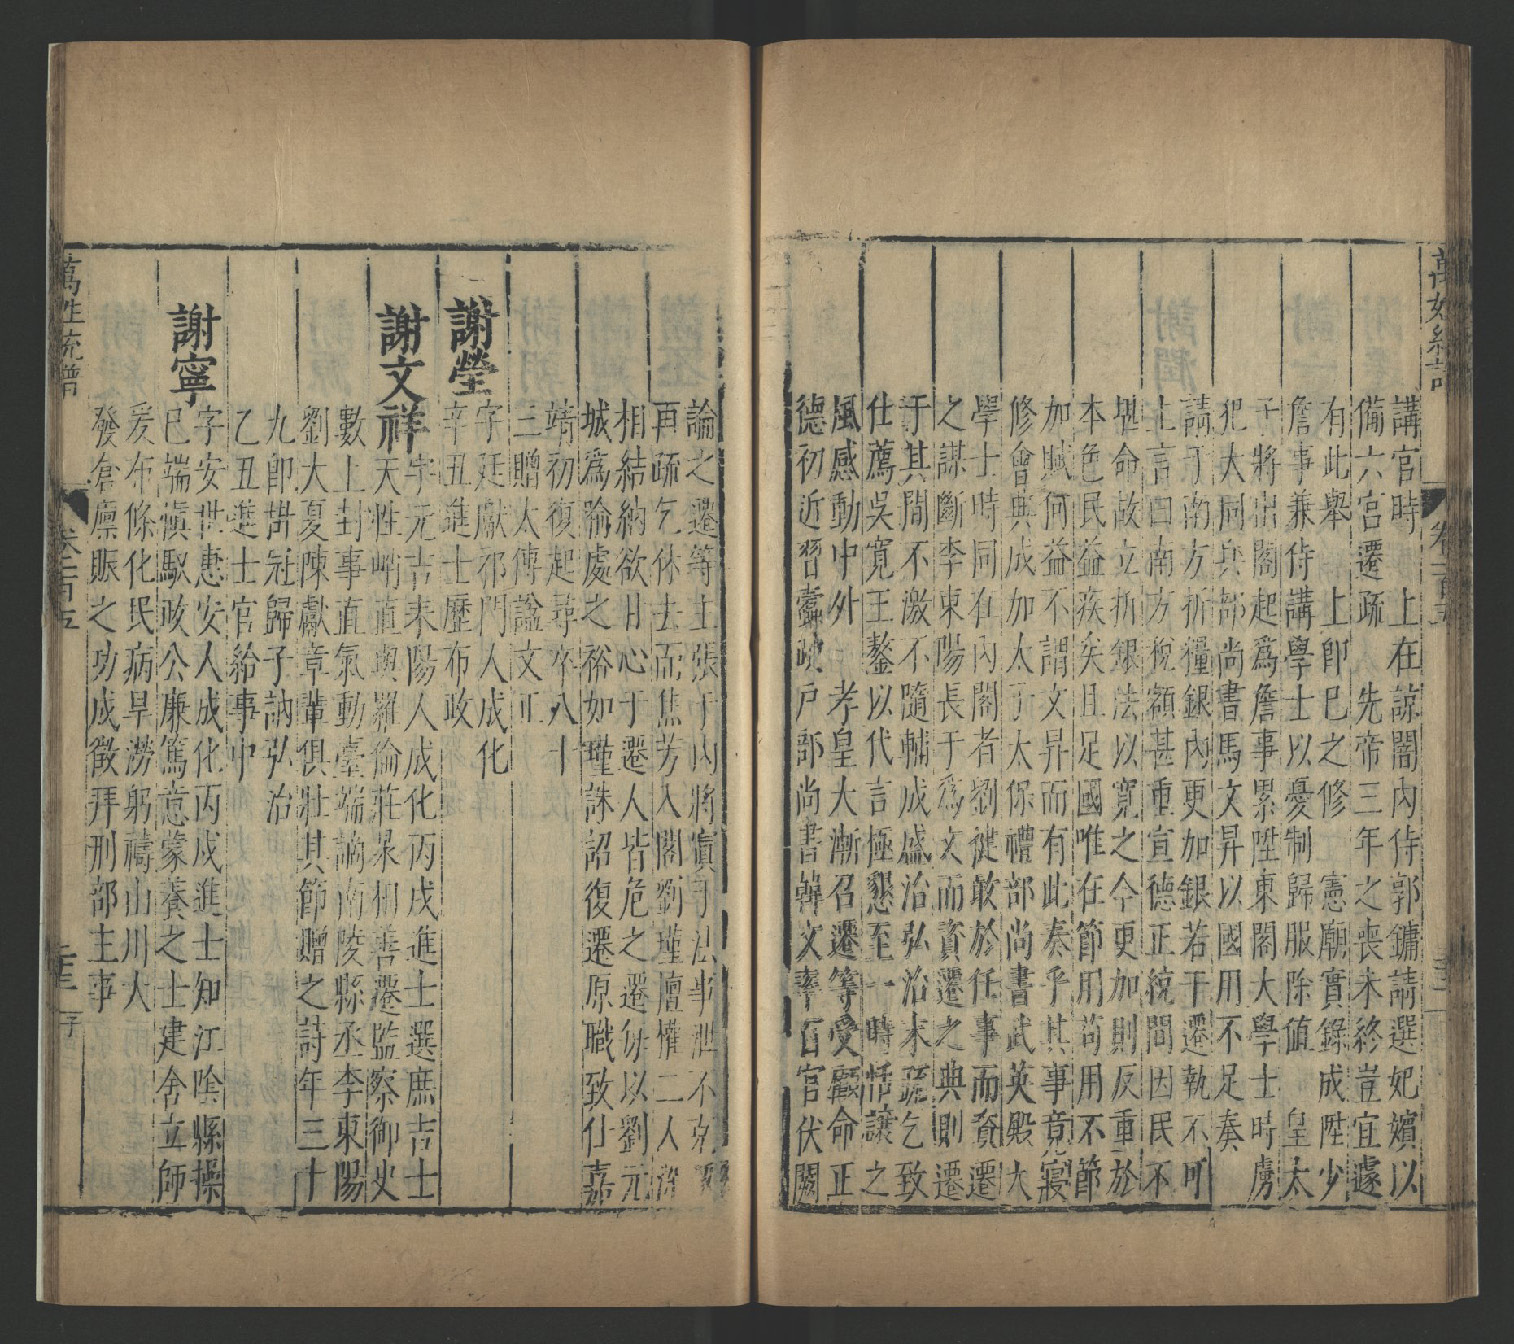 萬姓統譜
卷一百五
講官時　上在諒闇內侍郭鏞請選妃嬪以
備六宮遷疏　先帝三年之喪未終豈宜遽
有此舉　上卽巳之修　憲廟實錄成陞少
詹事兼侍講學士以憂制歸服除值　皇太
子將出閣起爲詹事累陞東閣大學士時虜
犯大同兵部尚書馬文昇以國用不足奏
請于南方折糧銀內更加銀若干遷執不可
上言曰南方稅額甚重宣德正統間因民不
堪命故立折銀法以寬之今更加則反重於
本色民益疾矣且足國唯在節用苟用不節
加賦何益不謂文昇而有此奏乎其事竟寢
修會典成加太子太保禮部尚書武英殿大
學士時同在內閣者劉健敢於任事而資遷
之謀斷李東陽長于爲文而資遷之典則遷
于其間不激不隨輔成盛治弘治末疏乞致
仕薦吳寬王鏊以代言極懇至一時恬讓之
風感動中外　孝皇大漸召遷等受顧命正
德初近習蠹政戶部尚書韓文率百官伏闕
論之遷等主張于內將寘于法事泄不克
再疏乞休去而焦芳入閣劉瑾擅權二人
相結納欲甘心于遷人皆危之遷仍以劉元
城爲喻處之裕如瑾誅詔復遷原職致仕嘉
靖初復起尋卒八十
三贈太傅謚文正
謝瑩
字廷獻祁門人成化
辛丑進士歷布政
謝文祥
字元吉耒陽人成化丙戌進士選庶吉士
天性峭直與羅倫莊泉相善遷監察御史
數上封事直氣動臺端謫南陵縣丞李東陽
劉大夏陳獻章輩俱壯其節贈之詩年三十
九卽掛冠歸子訥弘治
乙丑進士官給事中
謝寧
字安世惠安人成化丙戌進士知江陰縣操
巳端愼馭政公廉篤意蒙養之士建舍立師
爰布條化民病旱澇躬禱山川大
發倉廩賑之功成徵拜刑部主事
萬姓統譜
卷一百五